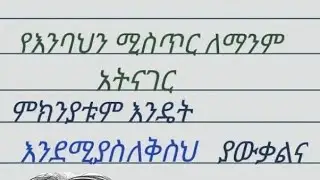 የእንባህን ሚስጥር ለማንም
አትናገር
ምክንያቱም እንዴት
እንደሚያስለቅስህ ያውቃልና